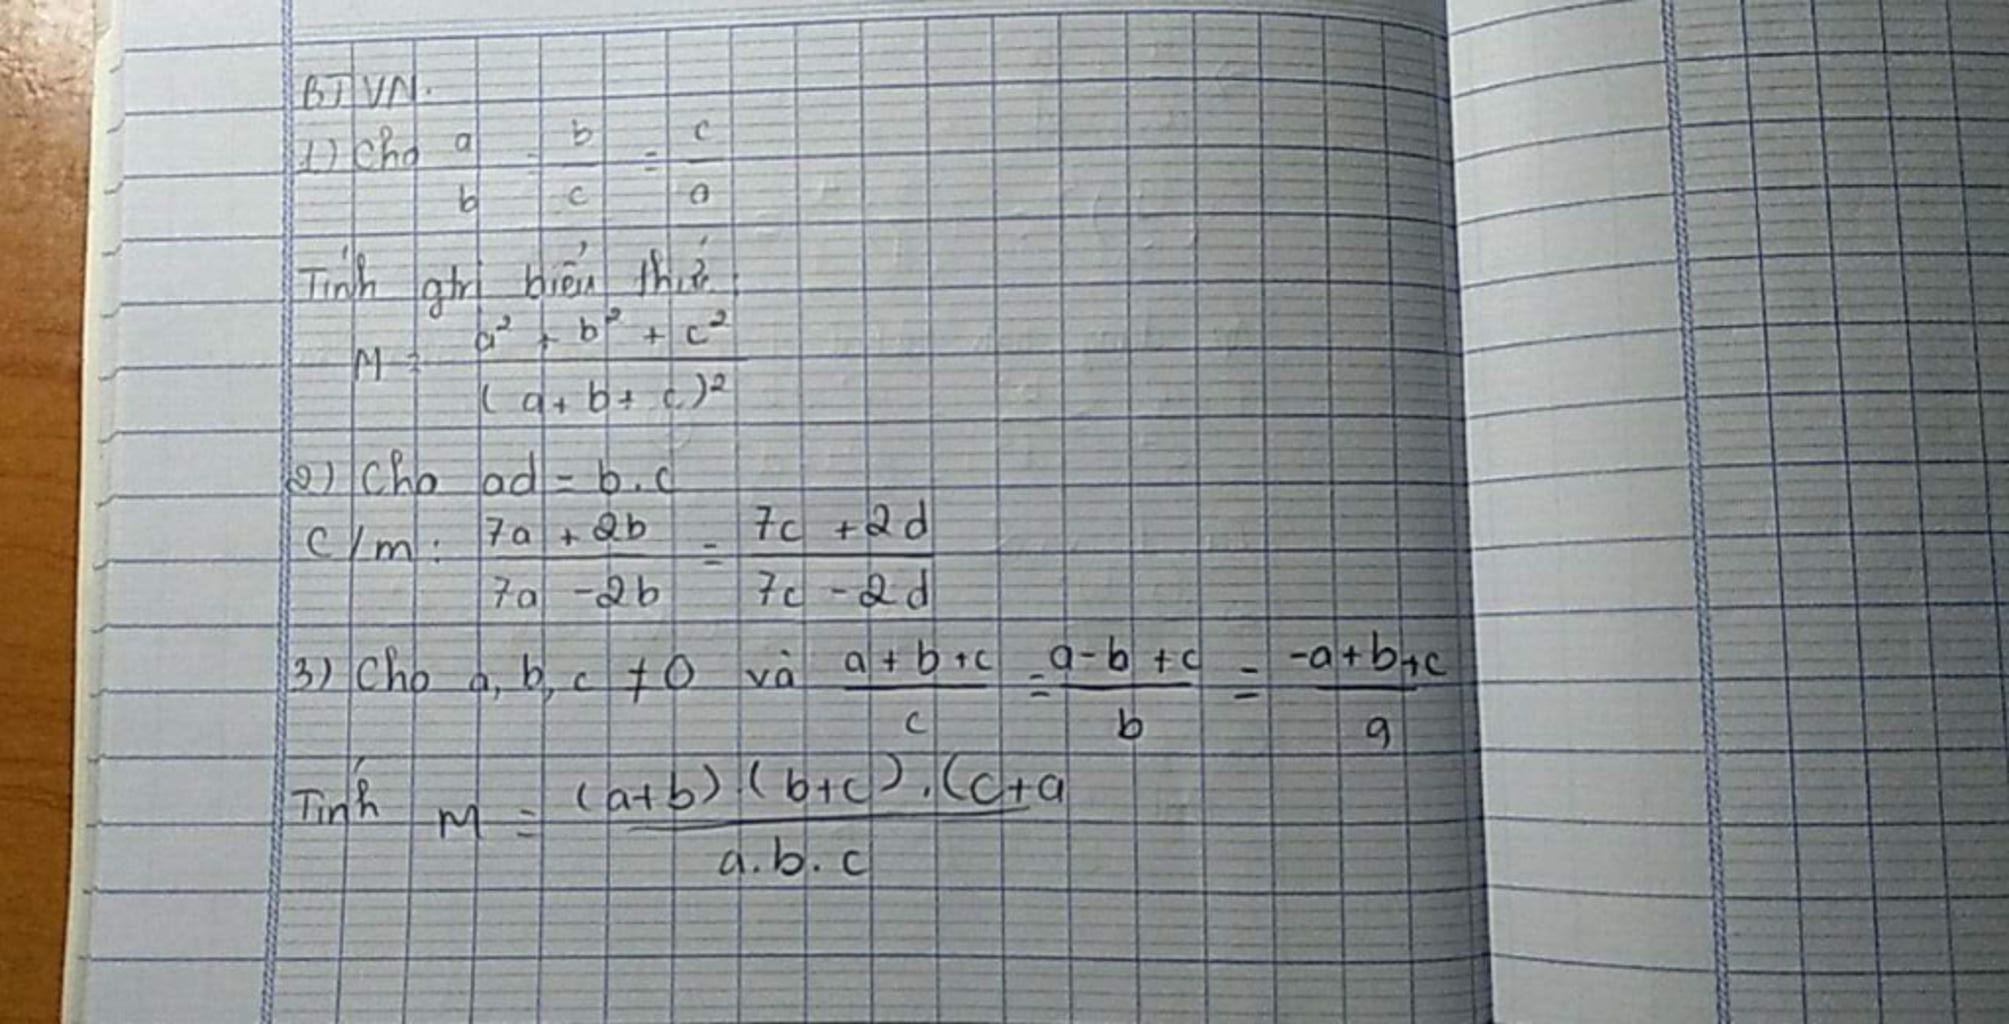 BTVN.
1) Cho a/b = b/c = c/a
Tính gtrị biểu thức
M = a² + b² + c² / (a + b + c)²
2) Cho ad = b.c
C/m: 7a + 2b / 7a - 2b = 7c + 2d / 7c - 2d
3) Cho a, b, c ≠ 0 và a + b + c / c = a - b + c / b = -a + b + c / a
Tính M = (a+b).(b+c).(c+a / a.b.c